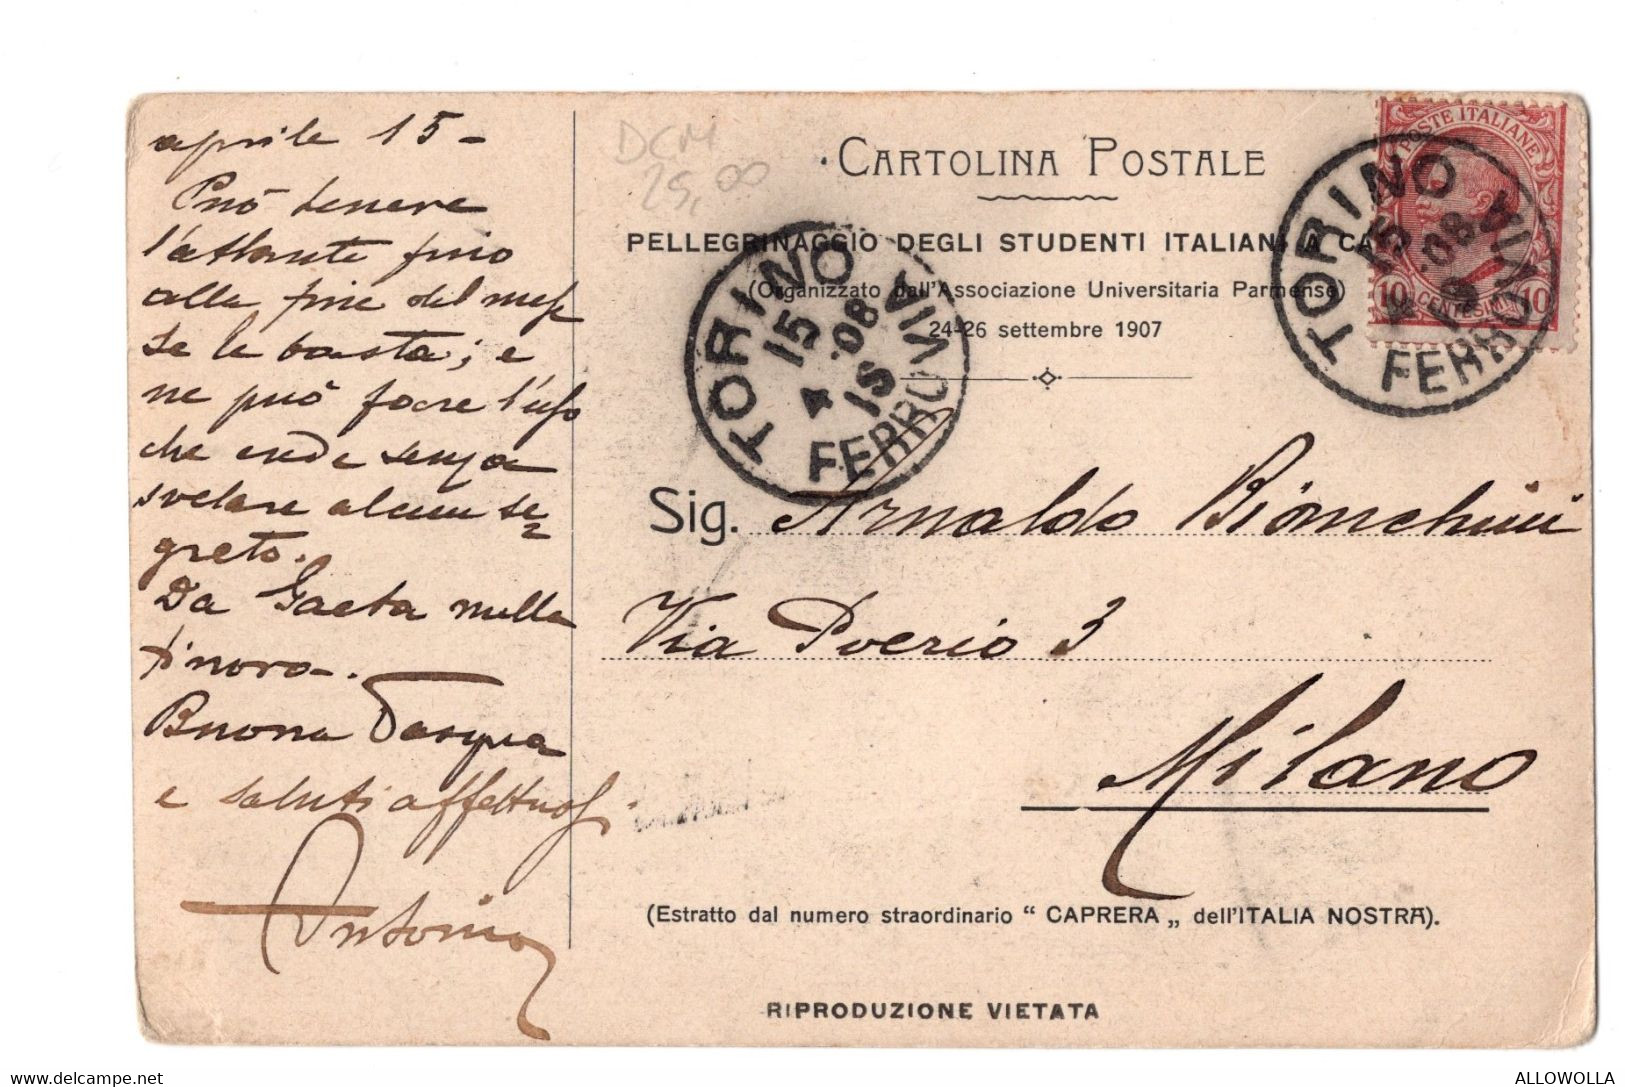 aprile 15 -
Può tenere
l'atlante fino
alla fine del mese
se le basta; e
ne può fare l'uso
che crede senza
svelare alcun se=
greto.
Da Gaeta nulla
finora -.
Buona Pasqua
e saluti affettuosi
Antonio
DCM
25,00
CARTOLINA POSTALE
PELLEGRINAGGIO DEGLI STUDENTI ITALIANI A CA
(Organizzato dall'Associazione Universitaria Parmense)
24-26 settembre 1907
POSTE ITALIANE
10 CENTESIMI 10
TORINO
15
4 08
FERROVIA
TORINO
15
4 .08
1S
FERROVIA
Sig. Arnaldo Bianchini
Via Poerio 3
Milano
(Estratto dal numero straordinario “ CAPRERA „ dell'ITALIA NOSTRA).
RIPRODUZIONE VIETATA
www.delcampe.net
ALLOWOLLA